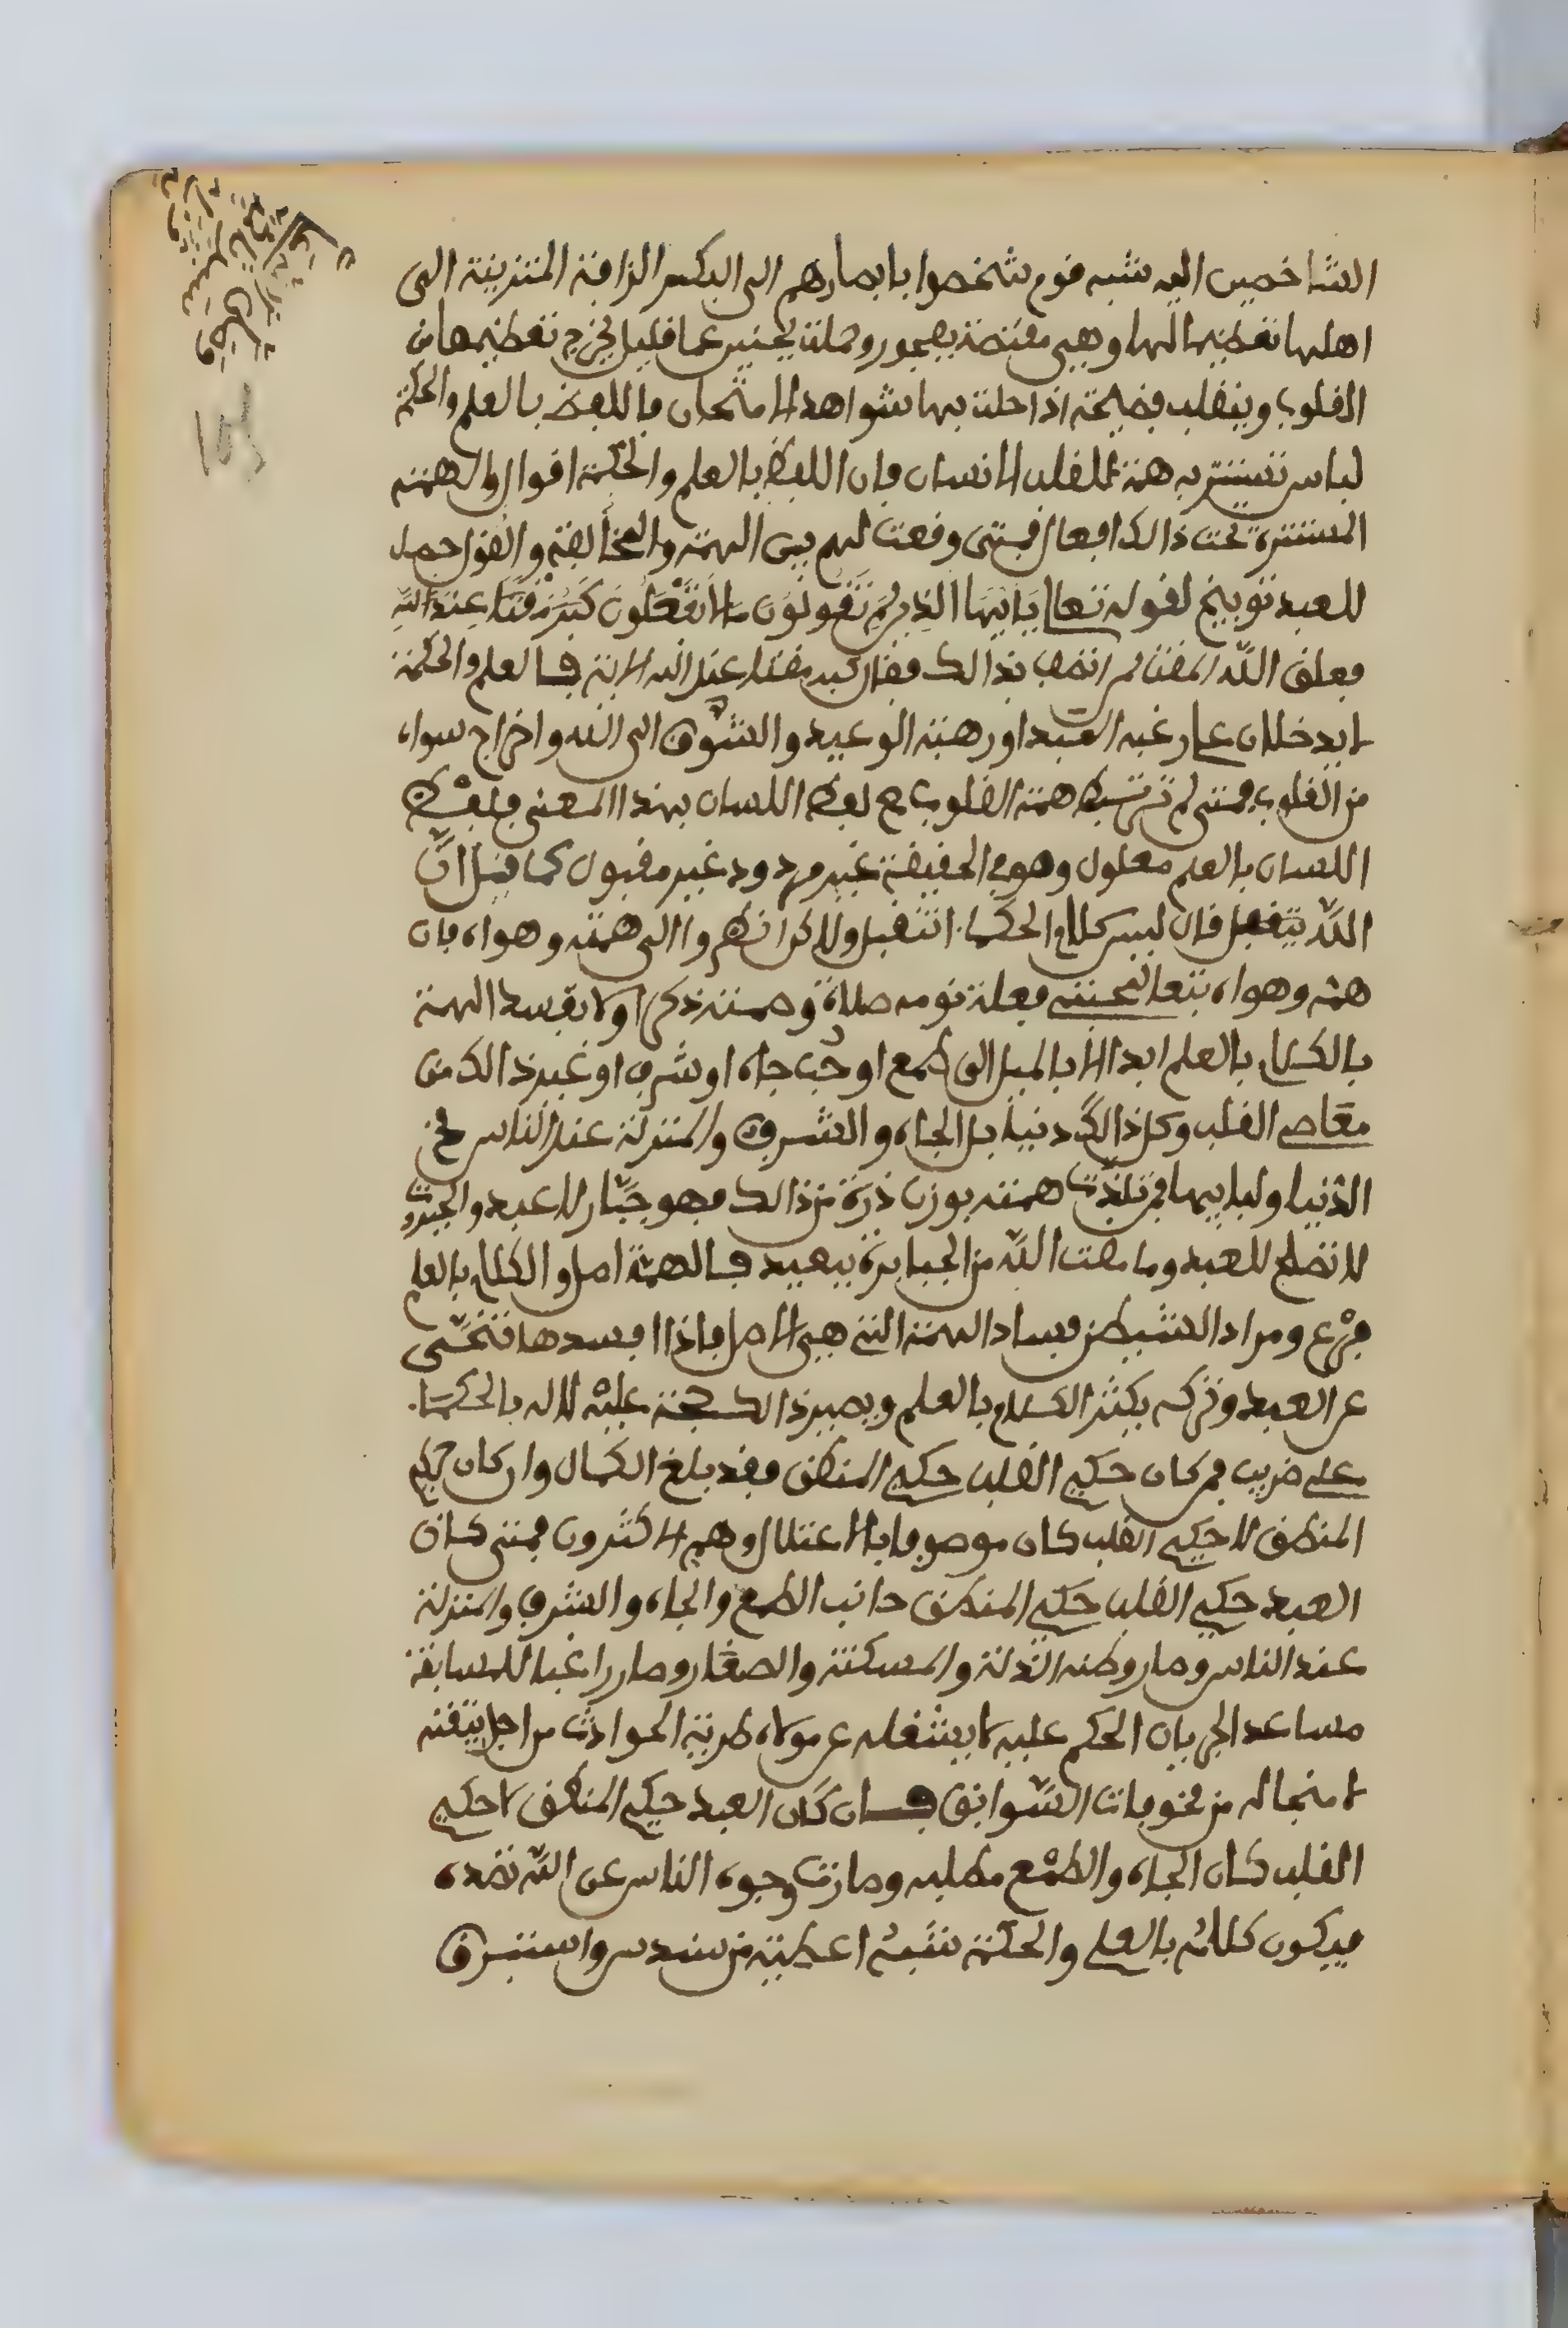 الشاخصين اليه شبه قوم شخصوا بابصارهم الى البكر الزافنة المتزينة التى
اهلها تعظيما لها وهى مفتضة بفجور وحملت بجنين عما قليل يخرج تعظيمها من
القلوب وينقلب فضيحة اذا حلت بها شواهد الامتحان فاللفظ بالعلم والحكمة
لباس تستتر به همة القلب الانسان فان اللفظ بالعلم والحكمة اقوال والهمة
المستترة تحت ذالك افعال فمتى وقعت لهم بين الهمة والمخالفة والقول حصل
للعبد توبيخ لقوله تعالى يَا أَيُّهَا الذين لِمَ تَقُولُونَ مَا لَا تَفْعَلُونَ كَبُرَ مَقْتًا عِندَ اللَّهِ
فعلق الله المقت لمن اتصف بذالك فقال كبر مقتا عند الله الاية فالعلم والحكمة
لا يدخلان على رغبة العبد او رهبة الوعيد والتشوق الى الله واخراج سواه
من القلوب فمتى لم ترتبط همة القلوب مع لفظ اللسان بهذا المعنى فلفظ
اللسان بالعلم معلول وهو فى الحقيقة غير مردود غير مقبول كما قيل انّ
اللّه يقول قال ليس كلام الحكماء اتقبل ولاكن انظروا الى همته وهواه فان
همه وهواه تبعا لمحبتى فعلت نومه صلاة وصمته ذكرا ولا تفسد الهمة
بالكلام بالعلم ابدا الا بالميل الى طمع او حب جاه او شرف او غير ذالك من
معاصى القلب وكل ذالك دنيا بل الجاه والشرف والمنزلة عند الناس مخ
الدنيا ولبابها فمن تلذذت همته بوزن ذرة من ذالك فهو جبّار لا عبد والجبروت
لا تصلح للعبد وما مقت اللّه من الجبابرة ببعيد فالهمّة اصل والكلام بالعلم
فرْع ومراد الشيطن فساد الهمة التى هى الاصل فاذا افسدها تنحّى
عن العبد وتركه يكثر الكلام بالعلم ويصير ذالك حجة عليْه لا له فالحكماء
على ضربين فمن كان حكيم القلب حكيم المنطق فقد بلغ الكمال وان كان حكيم
المنطق لا حكيم القلب كان موصوفا بالاعتلال وهم الاكثرون فمتى كان
العبد حكيم القلب حكيم المنطق جانب الطمع والجاه والشرف والمنزلة
عند الناس وصار وطنه الذلة والمسكنة والصغار وصار راغبا للمسابقة
مساعدا لجريان الحكم عليه لا يشغله عن مولاه طرية الحوادث من اجل يقينه
لا منجا له من مخوفات السّوابق فان كان العبد حكيم المنطق لا حكيم
القلب كان الجاه والطمْع مطلبه وصارت وجوه الناس عن اللّه تصده
فيكون كلامه بالعلم والحكمة شبه اغطية من سندس واستبرق